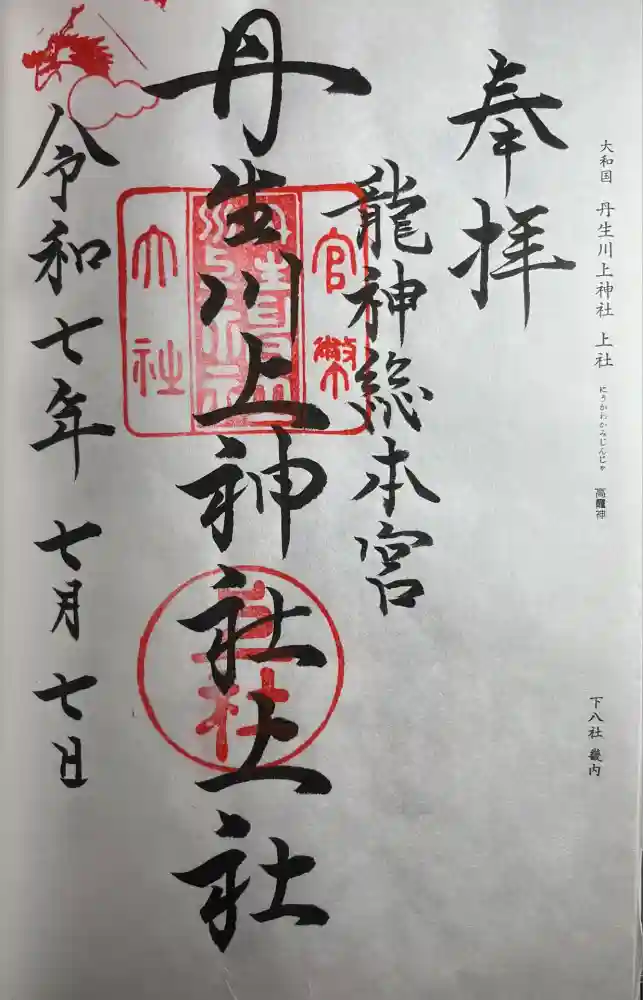 大和国 丹生川上神社 上社 にうかわかみじんじゃ 高龗神
下八社 畿内
奉拝
龍神総本宮
丹生川上神社上社
令和七年 七月 七日
官幣
大社
上社